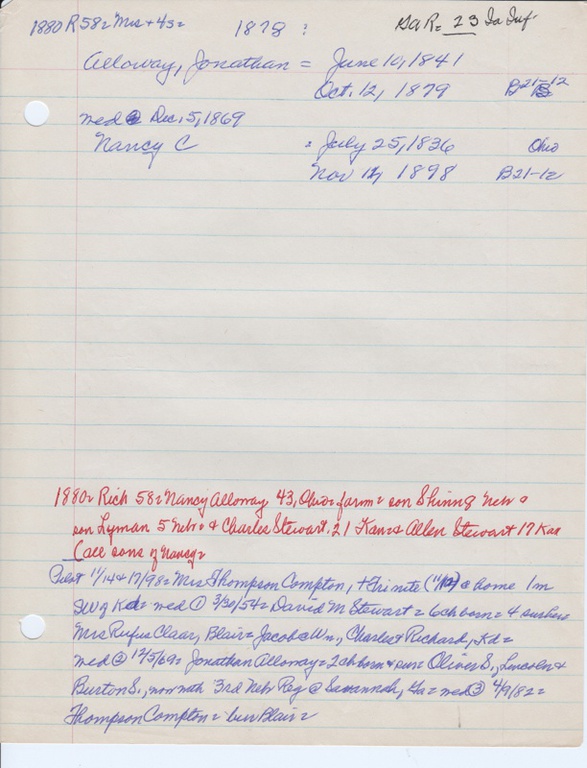 1880 R 58 = Mrs + 43 = 1878 ? GAR = 23 Ia Inf
Alloway, Jonathan = June 10, 1841
Oct. 12, 1879 B 21-12
med @ Dec. 5, 1869
Nancy C = July 25, 1836 Ohio
Nov 12, 1898 B21-12
1880 = Rich 58 = Nancy Alloway 43, Ohio = farm = son 9 Nebr &
son Lyman 5 Nebr = & Charles Stewart, 21 Kans & Allen Stewart 17 Kan
(all sons of Nancy =
Pilot 11/14 & 17/98 = Mrs Thompson Compton, + Fri nite (11/12) @ home 1m
SW of Kd = med ① 3/30/54 = David M Stewart = 6 ch born = 4 survive
Mrs Rufus Claar, Blair = Jacob & Wm., Charles & Richard, Kd =
med ② 12/5/69 = Jonathan Alloway = 2 ch born & surv Oliver S., Lincoln &
Burton S., now with 3rd Nebr Reg @ Savannah, Ga = med ③ 4/9/82 =
Thompson Compton = bur Blair =